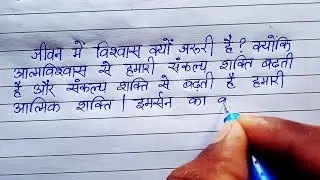 जीवन में विश्वास क्यों जरूरी है? क्योंकि
आत्मविश्वास से हमारी संकल्प शक्ति बढ़ती
है और संकल्प शक्ति से बढ़ती है हमारी
आत्मिक शक्ति। इमर्सन का